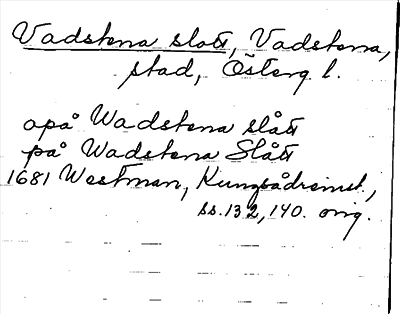 Vadstena slott, Vadstena,
stad, Österg. l.
opå Wadstena slått
på Wadstena Slått
1681 Westman, Kungsådreinst.,
ss. 132, 140. orig.